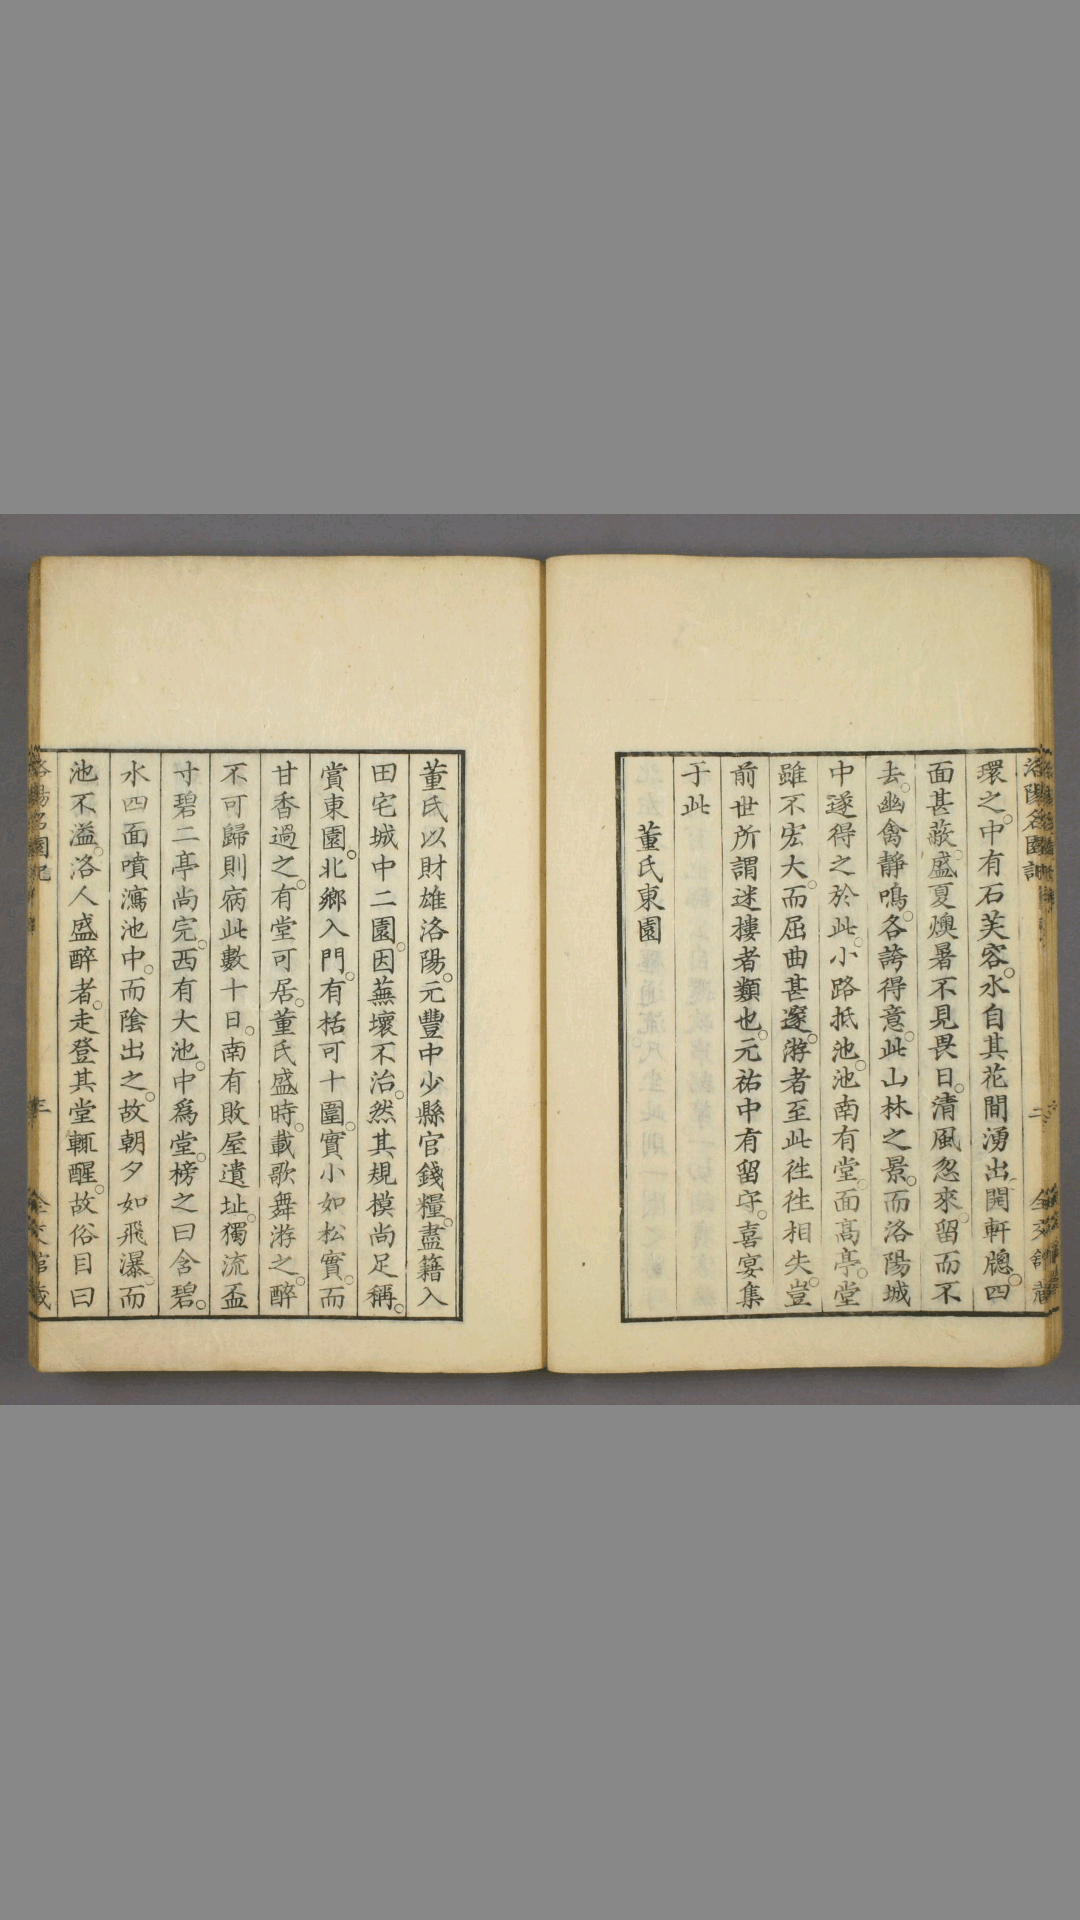 洛陽名園記
環之。中有石芙容。水自其花間湧出。開軒牕。四
面甚蔽。盛夏燠暑不見畏日。清風忽來。留而不
去。幽禽靜鳴。各誇得意。此山林之景。而洛陽城
中遂得之於此。小路抵池。池南有堂。面高亭。堂
雖不宏大。而屈曲甚邃。游者至此往往相失。豈
前世所謂迷樓者類也。元祐中有留守。喜宴集
于此
董氏東園
董氏以財雄洛陽。元豐中少縣官錢糧。盡籍入
田宅城中二園。因蕪壞不治。然其規模尚足稱。
賞東園。北鄉入門。有栝可十圍。實小如松實。而
甘香過之。有堂可居。董氏盛時。載歌舞游之。醉
不可歸則病此數十日。南有敗屋遺址。獨流盃
寸碧二亭尚完。西有大池。中爲堂。榜之曰含碧。
水四面噴瀉池中。而陰出之。故朝夕如飛瀑。而
池不溢。洛人盛醉者。走登其堂輒醒。故俗目曰